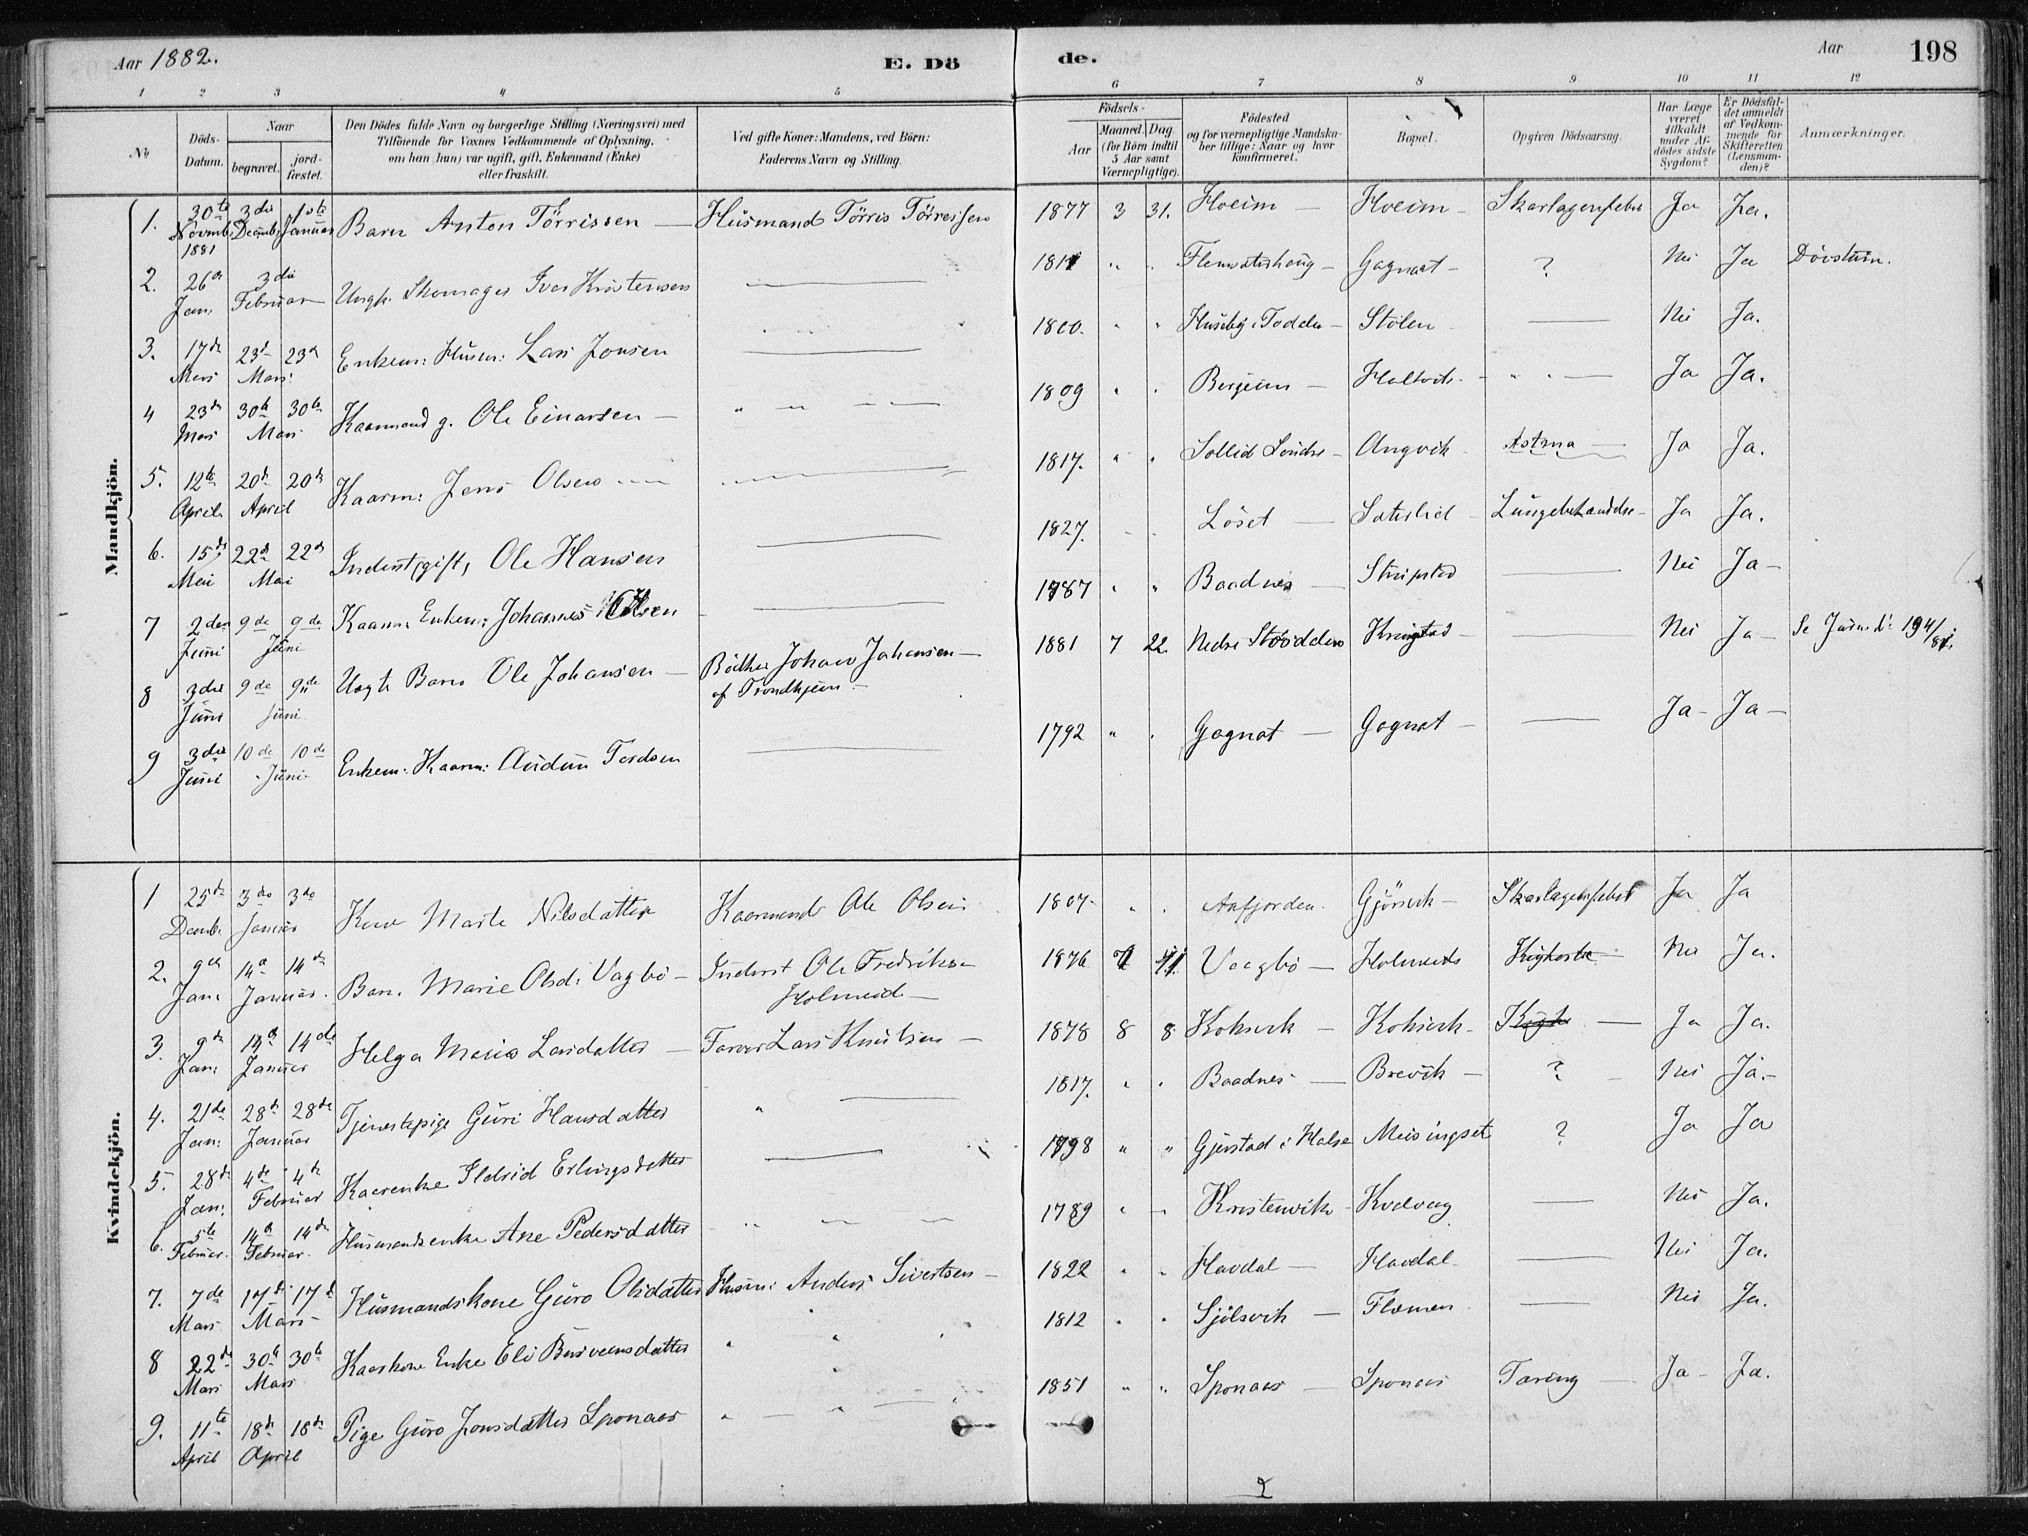 Aar 1882.
E. Dö
de.
Aar
198
1 2 3 4 5 6 7 8 9 10 11 12
No
Döds-Datum.
Naar
begravet.
jord-fæstet.
Den Dödes fulde Navn og borgerlige Stilling (Næringsvei) med
Tilföiende for Voxnes Vedkommende af Oplysning,
om han (hun) var ugift, gift, Enkemand (Enke)
eller fraskilt.
Ved gifte Koner: Mandens, ved Börn:
Faderens Navn og Stilling.
Födsels-
Aar
Maaned. Dag.
(for Börn indtil
5 Aar samt
Værnepligtige).
Födested
og for værnepligtige Mandska-
ber tillige: Naar og hvor
konfirmeret.
Bopæl.
Opgiven Dödsaarsag.
Har Læge
været
tilkaldt
under Af-
dödes sidste
Sygdom?
Er Dödsfal-
det anmeldt
af Vedkom-
mende for
Skifteretten
(Lensman-
den)?
Anmærkninger.
Mandkjön.
1. 30te Novmb. 1881 3die Decemb. 1ste Januar Barn Anton Törrissen — Husmand Törris Törresen 1877 3 31. Hoeim — Hoeim — Skarlagensfeber Ja Ja.
2. 26de Jan. 3die Februar Ungk. Skomager Iver Kristensen — 1811 " " Flemsæterhaug — Gagnat — ? Nei Ja Dövstum.
3. 17de Mars 23d 23d Mars. Enkem: Husm: Lars Jonsen — 1800. " " Huseby i Todalen — Stölen — Nei Ja.
4 23de Mars 30te 30te Mars Kaarmand g. Ole Einarsen — " — — 1809 " " Bergeim — Holtvik. — " " — Ja Ja.
5. 12te April 20de 20de April Kaarm: Jens Olsen — 1817. " " Sollid Söndre — Angvik Astma — Ja Ja.
6. 15de Mai 22de 22de Mai Inderst, gift, Ole Hansen — 1827. Löset — Sæterlid — Lungebetændelse — Ja Ja.
7 2den Juni 9de 9de Juni Kaarm. Enkem: Johannes Olsen — 1787 " " Baadnes — Stripstad — Nei Ja —
8 3die Juni 9de 9de Juni Uægte Barn Ole Johansen — Bödker Johan Johansen —
af Trondhjem — 1881 7 22. Nedre Stödden Kringstad — Nei Ja — Se Journ. № 194/81.
9 3die Juni 10de 10de Juni Enkem: Kaarm: Audun Tordsen — 1792 " " Gagnat — Gagnat — Ja — Ja —
Kvindekjön.
1 25de Decemb. 3die 3die Januar Kone Marte Nilsdatter Kaarmand Ole Olsen 1807. " " Aafjorden. Gjörvik — Skarlagensfeber Ja Ja
2. 9de Jan. 14de 14de Januar. Barn. Marie Olsd: Vagbö — Inderst Ole Fredriksen
Holmeid — 1876 Vaagbö — Holmeide Kighoste Nei Ja.
3. 9de Jan: 14de 14de Januar Helga Marie Larsdatter — Farver Lars Knutsen — 1878 8 8 Kolsvik — Kolsvik — Kigh. — Ja Ja.
4. 21de Jan: 28de 28de Januar Tjenestepige Guri Hansdatter " — 1817. " " Baadnes — Brevik — ? — Nei Ja. —
5. 28de Jan: 4de 4de Februar Kaarenke Ildrid Erlingsdatter — 1798 " " Gjerstad i Halse Meisingset ? Ja Ja
6. 5te Februar. 14de 14de Februar. Husmandsenke Ane Pedersdatter " — — 1789 " " Kristenvik — Kvalvaag — Nei Ja.
7. 7de Mars 17de 17de Mars — Husmandskone Guro Olsdatter Husm: Anders Sivertsen — 1822 " " Havdal — Havdal — Nei Ja.
8 22de Mars 30te 30te Mars Kaarkone Enke Eli Bersveensdatter " " " 1812 " " Sjölsvik — Flemen — Nei Ja.
9. 11te April 18de 18de April Pige Guro Jonsdatter Sponaas " — " — 1851 " " Sponaas — Sponaas Tæring — Ja — Ja.
2